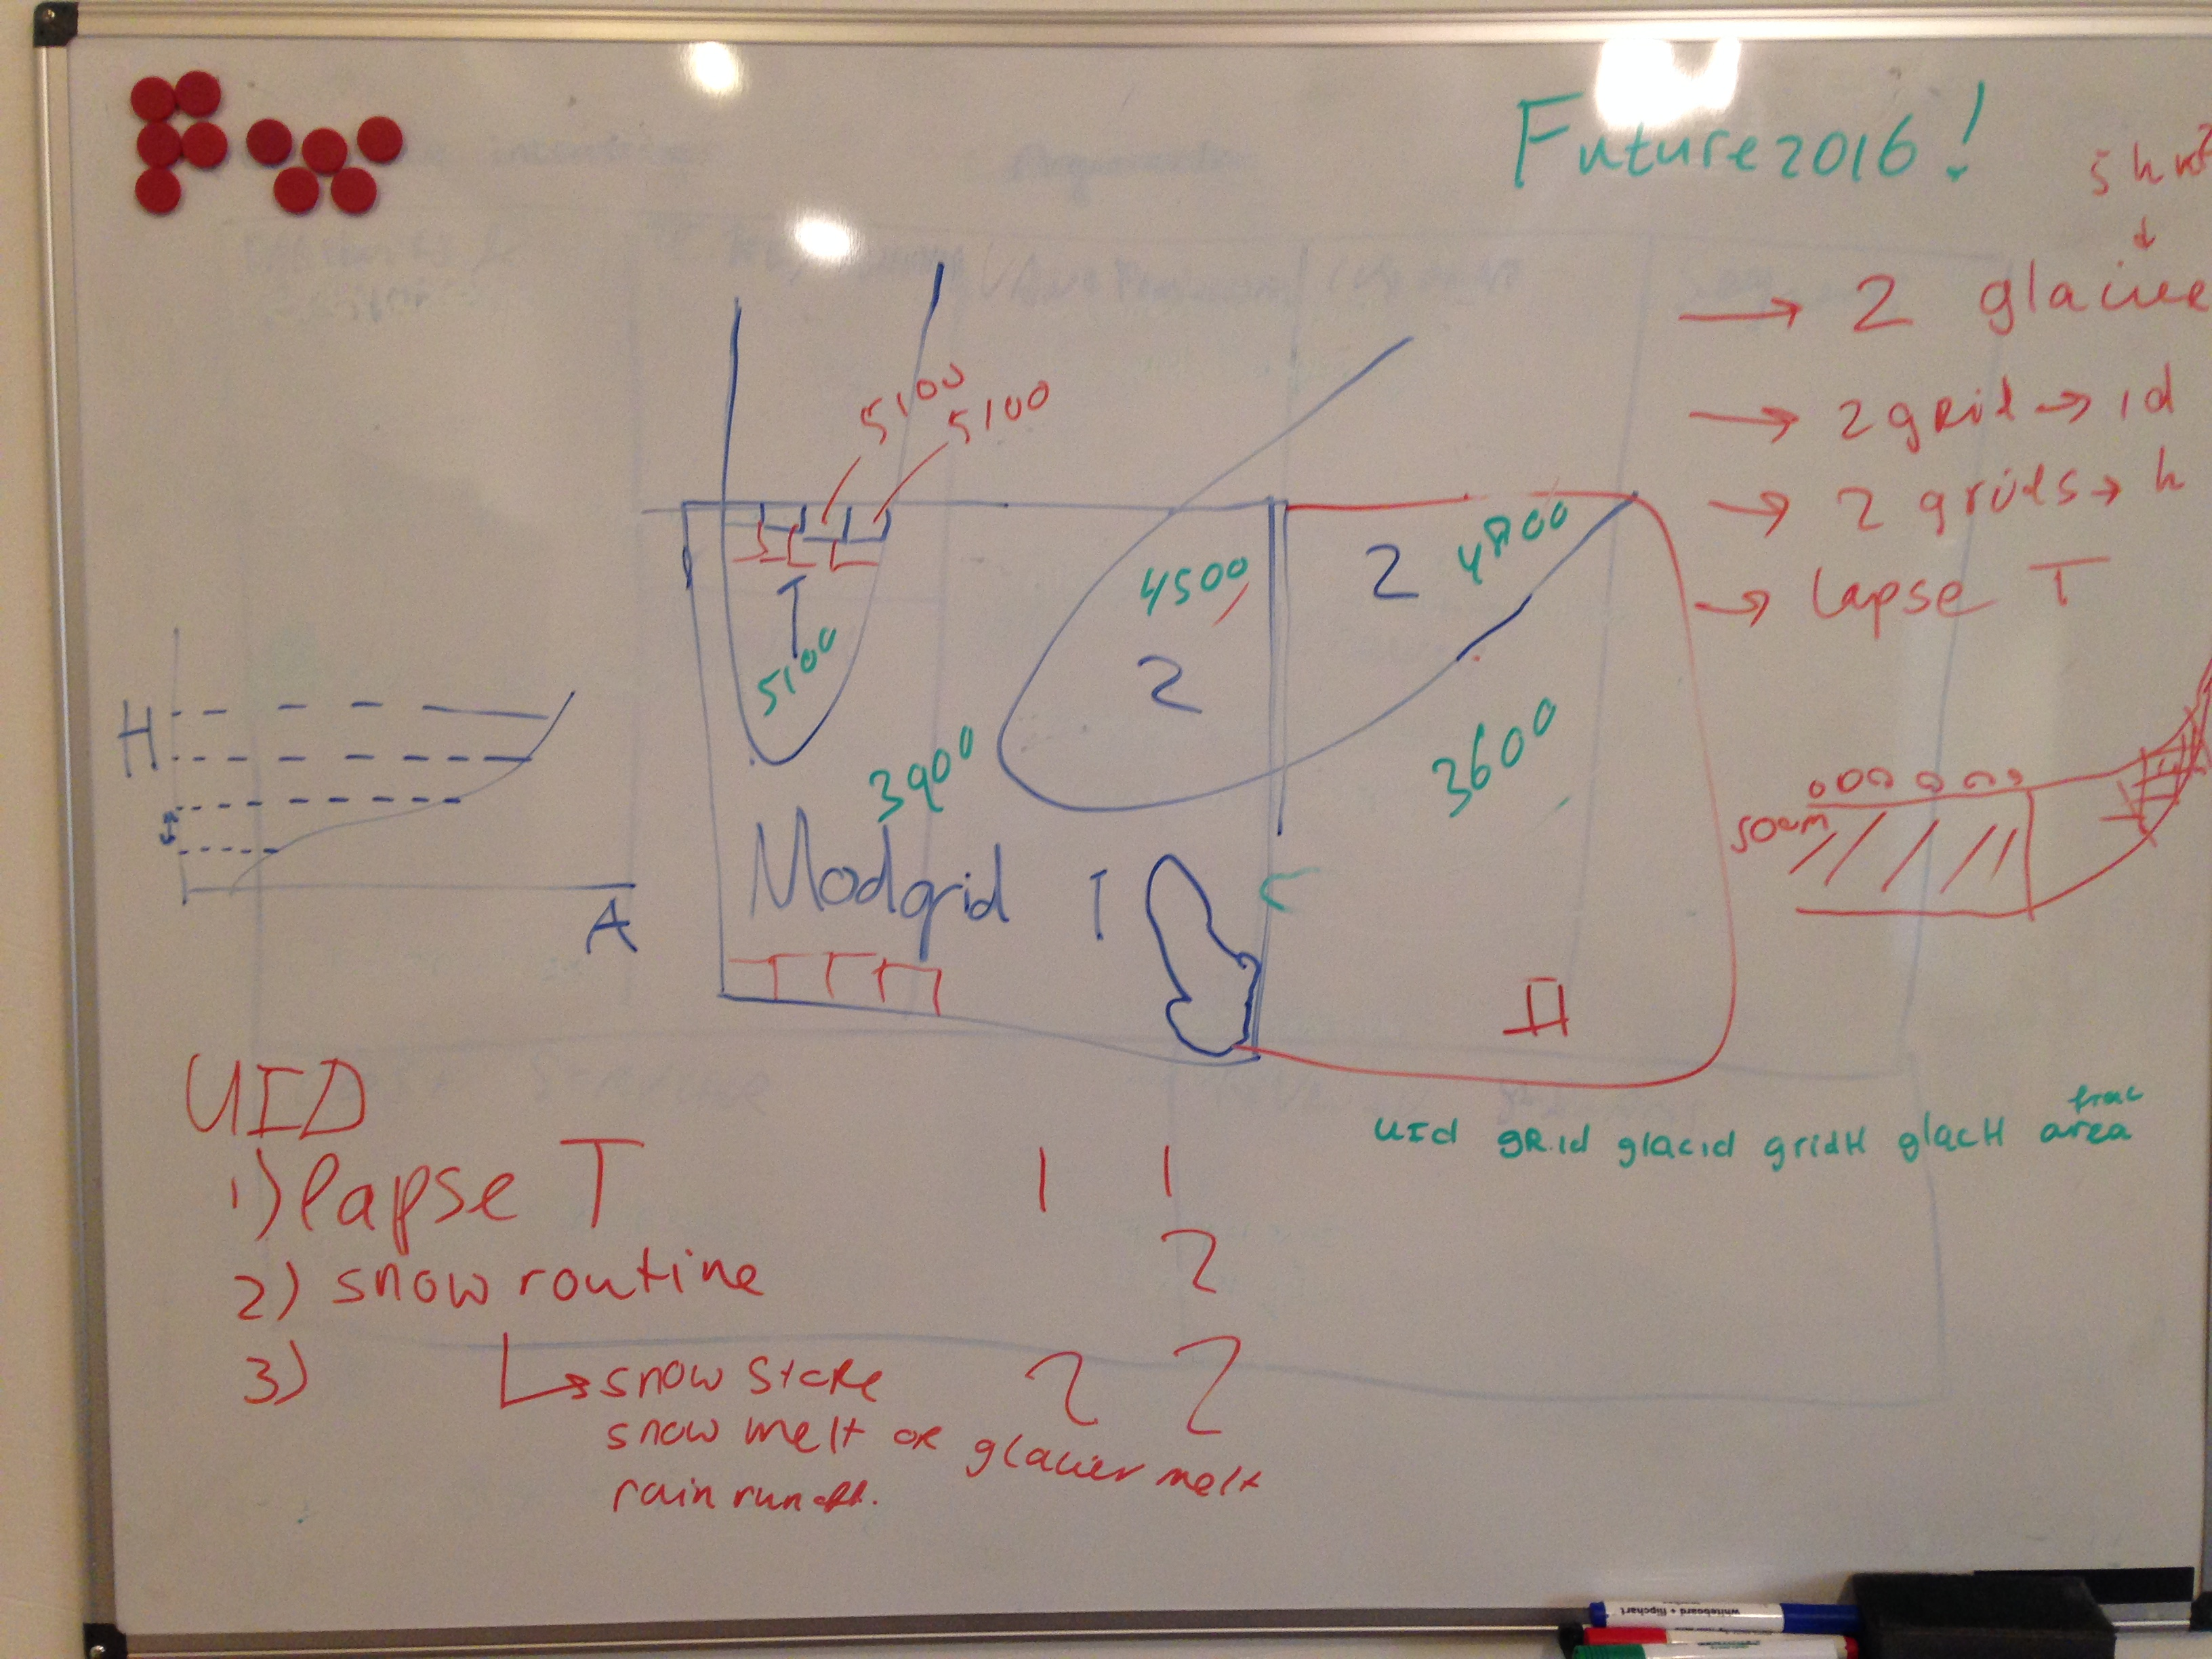 FW
Future2016!
→ 2
→ 2 grid → id
→ 2 grids → h
→ lapse T
5100
5100
4500
2
4800
2
1
5100
3900
3600
H
A
Modgrid
1
50cm
UID
1) lapse T
1 1
2) snow routine
2
3)
↳ snow store
2 2
snow melt or glacier melt
rain runoff.
frac
UId gRid glacid gridH glacH area
whiteboard + flipchart